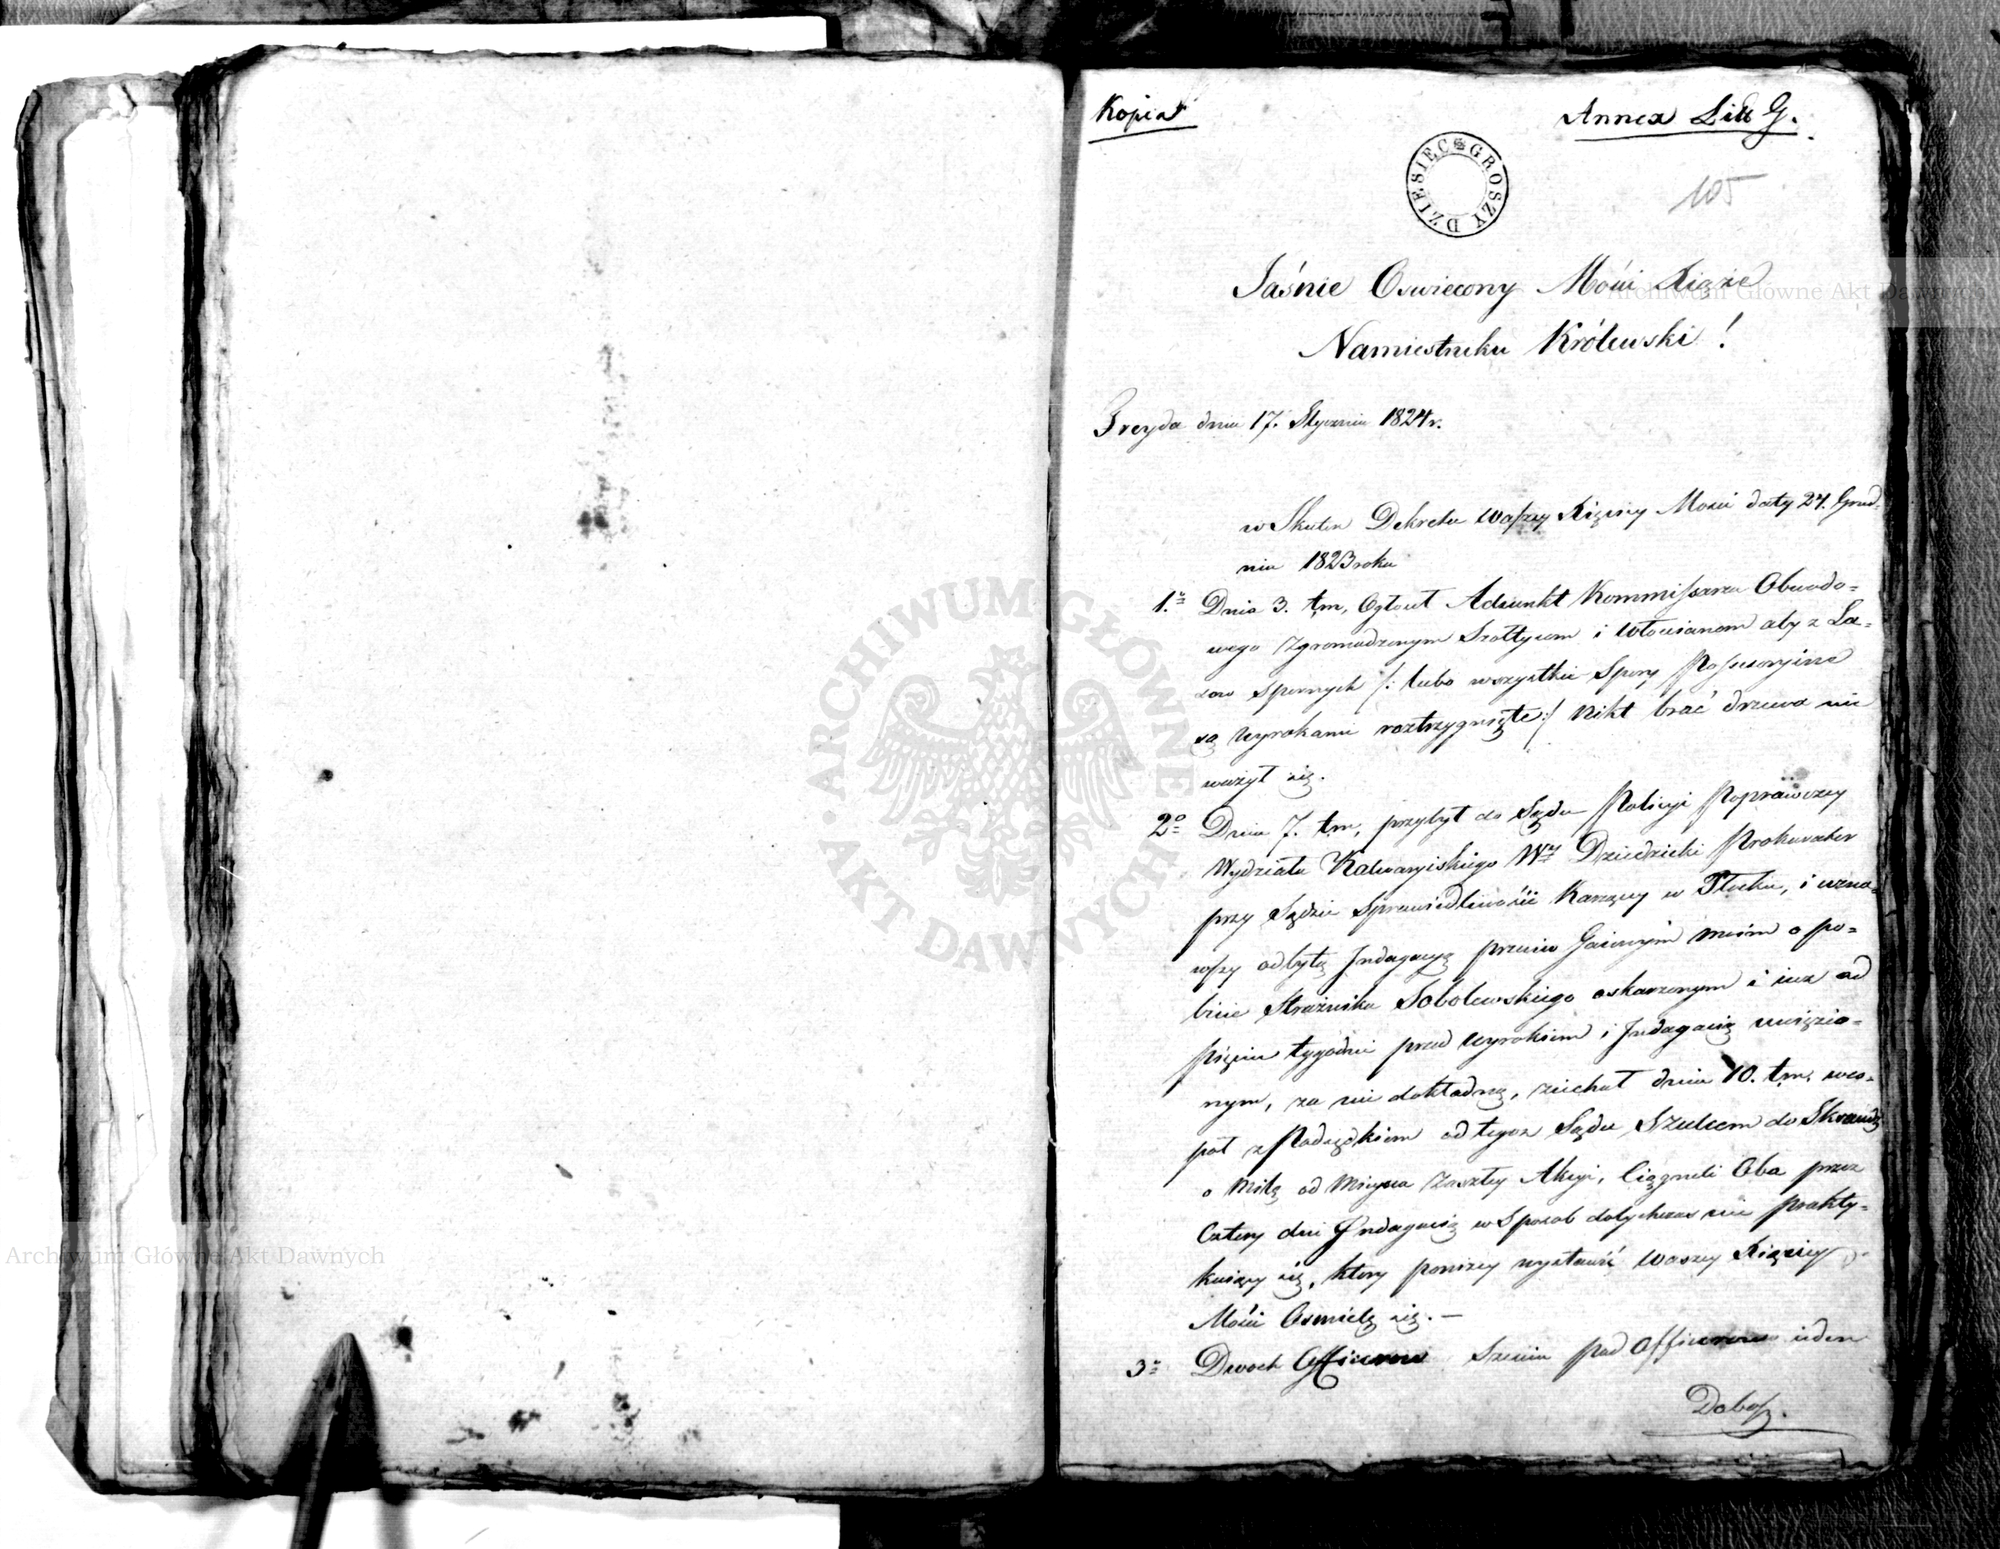 Kopia
Annex Litt G.
DZIESIĘC GROSZY
105
Jaśnie Oswiecony Mości Xiąże
Namiestniku Królewski!
Freyda dnia 17. Stycznia 1824r.
w Skutek Dekretu Waszey Xiążęcy Mości daty 24. Grud-
nia 1823 roku
1.° Dnia 3. t.m. Ogłosił Adiunkt Kommissarza Obwodo-
wego Zgromadzonym Szołtysom i Włościanom aby z La-
sow Spornych /: lubo wszystkie Spory Possessoryine
są Wyrokami roztrzygnięte :/ Nikt brać drzewa nie
ważył się.
2° Dnia 7. t.m. przybył do Sądu Policyi Poprawczey
Wydziału Kalwaryiskiego Wy Dziedzicki Prokurator
przy Sądzie Sprawiedliwości Karzący w Płocku, i uzna-
wszy odbytą Indagacyą przeciw Gaiowym moim o po-
bicie Strażnika Sobolewskiego oskarzonym i iuż od
pięciu tygodni przed Wyrokiem i Indagacią uwięzio-
nym, za nie dokładną, ziechał dnia 10. t.m. wes-
poł z Podsędkiem od tegoż Sądu Szulcem do
o Milę od Mieysca Zaszłey Akcyi, Ciągneli Oba przez
Cztery dni Indagacią w Sposob dotychczas nie prakty-
kuiący się, ktory poniżey wystawić Waszey Xiążęcy
Mości Osmielę się. —
3° Dwoch Officerow pod Officerow ieden
ARCHIWUM GŁÓWNE AKT DAWNYCH
Archiwum Główne Akt Dawnych
Archiwum Główne Akt Dawnych